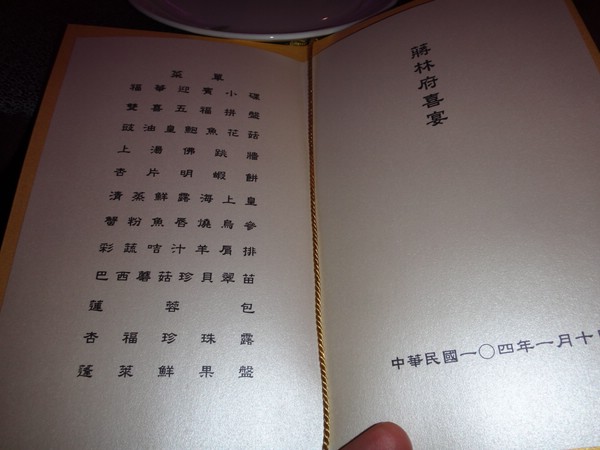 菜單
福華迎賓小碟
雙喜五福拼盤
豉油皇鮑魚花菇
上湯佛跳牆
杏片明蝦餅
清蒸鮮露海上皇
蟹粉魚唇燒烏參
彩蔬咭汁羊肩排
巴西蘑菇珍貝翠苗
蓮蓉包
杏福珍珠露
蓬萊鮮果盤
蔣林府喜宴
中華民國一〇四年一月十